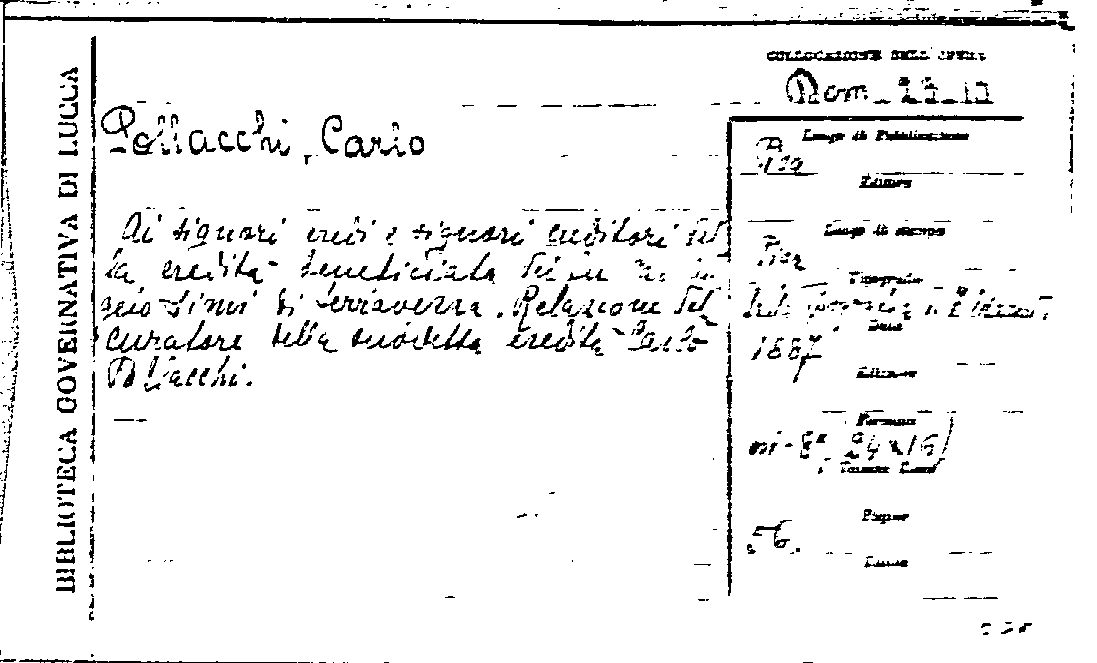 BIBLIOTECA GOVERNATIVA DI LUCCA
COLLOCAZIONE DELL'OPERA
Pollacchi, Carlo
Ai signori eredi e signori creditori del
la eredità beneficiata
di Terraverna. Relazione del
curatore della suddetta eredità Carlo
Pollacchi.
Luogo di Pubblicazione
Pisa
Editore
Luogo di stampa
Pisa
Tipografia
Data
1887
Edizione
Formato
in-8° 24x16)
Pagine
56.